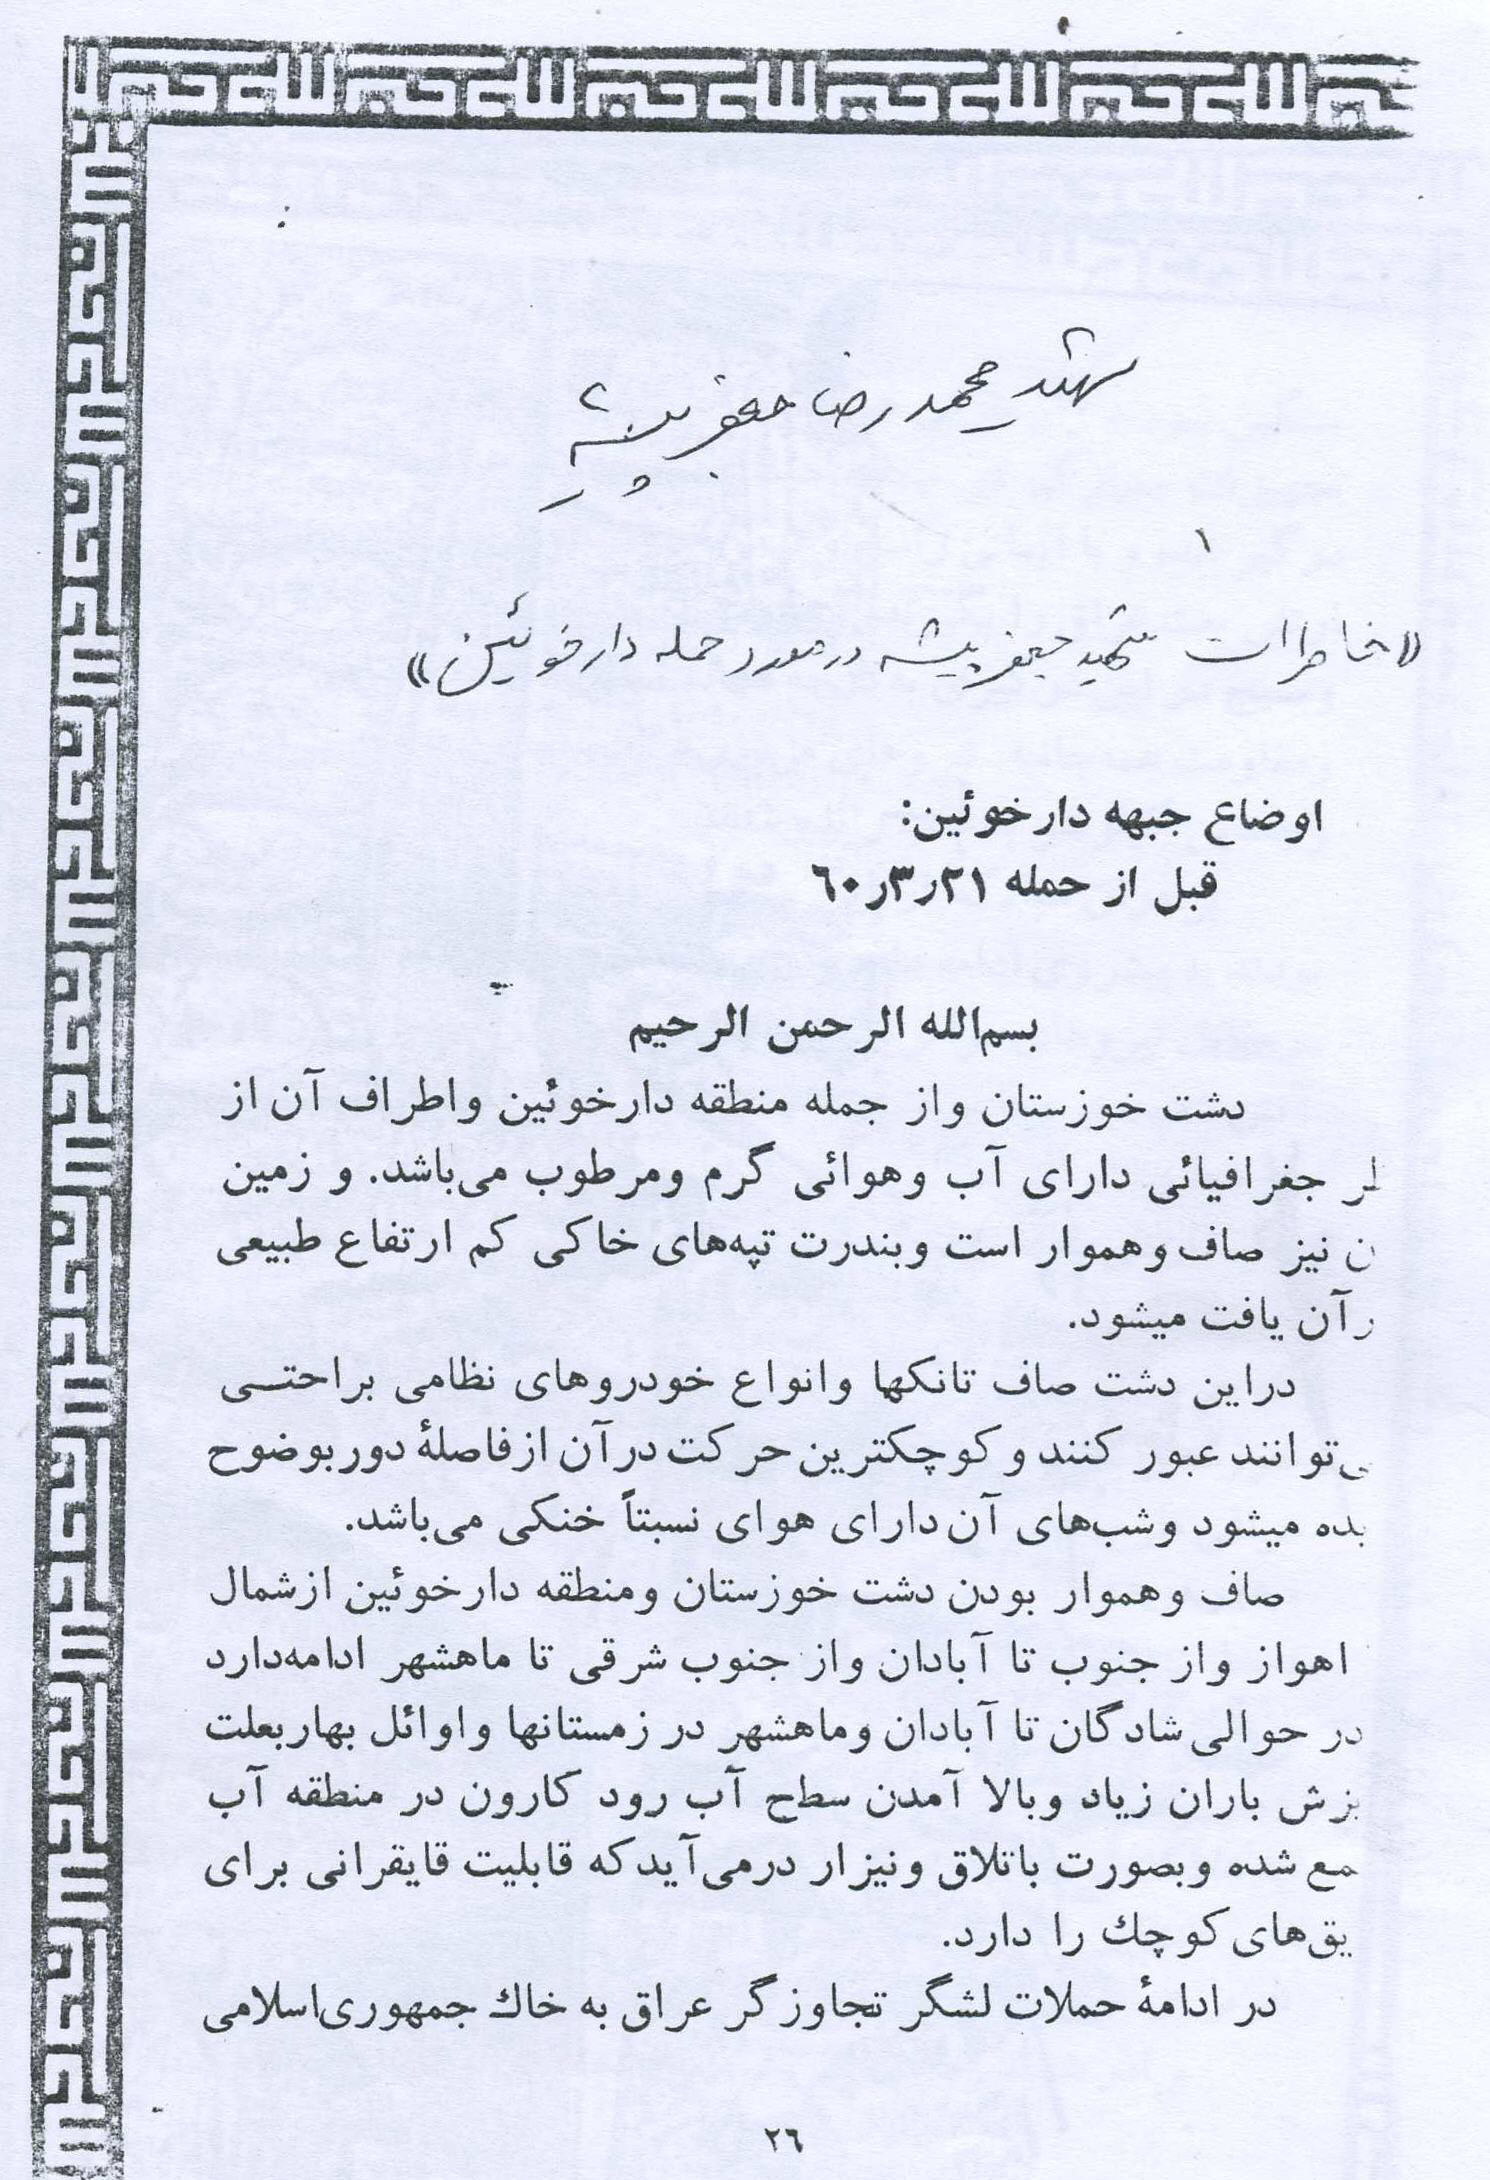 شهید محمد رضا جعفر پیشه
۱
«خاطرات شهید جعفر پیشه در مورد حمله دارخوئین»
اوضاع جبهه دارخوئین:
قبل از حمله ۲۱ر۳ر۶۰
بسم‌الله الرحمن الرحیم
دشت خوزستان واز جمله منطقه دارخوئین واطراف آن از
جغرافیائی دارای آب وهوائی گرم ومرطوب می‌باشد. و زمین
نیز صاف وهموار است وبندرت تپه‌های خاکی کم ارتفاع طبیعی
رآن یافت میشود.
دراین دشت صاف تانکها وانواع خودروهای نظامی براحتی
ی‌توانند عبور کنند و کوچکترین حرکت درآن ازفاصلهٔ دوربوضوح
یده میشود وشب‌های آن دارای هوای نسبتاً خنکی می‌باشد.
صاف وهموار بودن دشت خوزستان ومنطقه دارخوئین ازشمال
اهواز واز جنوب تا آبادان واز جنوب شرقی تا ماهشهر ادامه‌دارد
در حوالی شادگان تا آبادان وماهشهر در زمستانها واوائل بهاربعلت
یزش باران زیاد وبالا آمدن سطح آب رود کارون در منطقه آب
مع شده وبصورت باتلاق ونیزار درمی‌آیدکه قابلیت قایقرانی برای
یق‌های کوچك را دارد.
در ادامهٔ حملات لشگر تجاوزگر عراق به خاك جمهوری‌اسلامی
۲۶